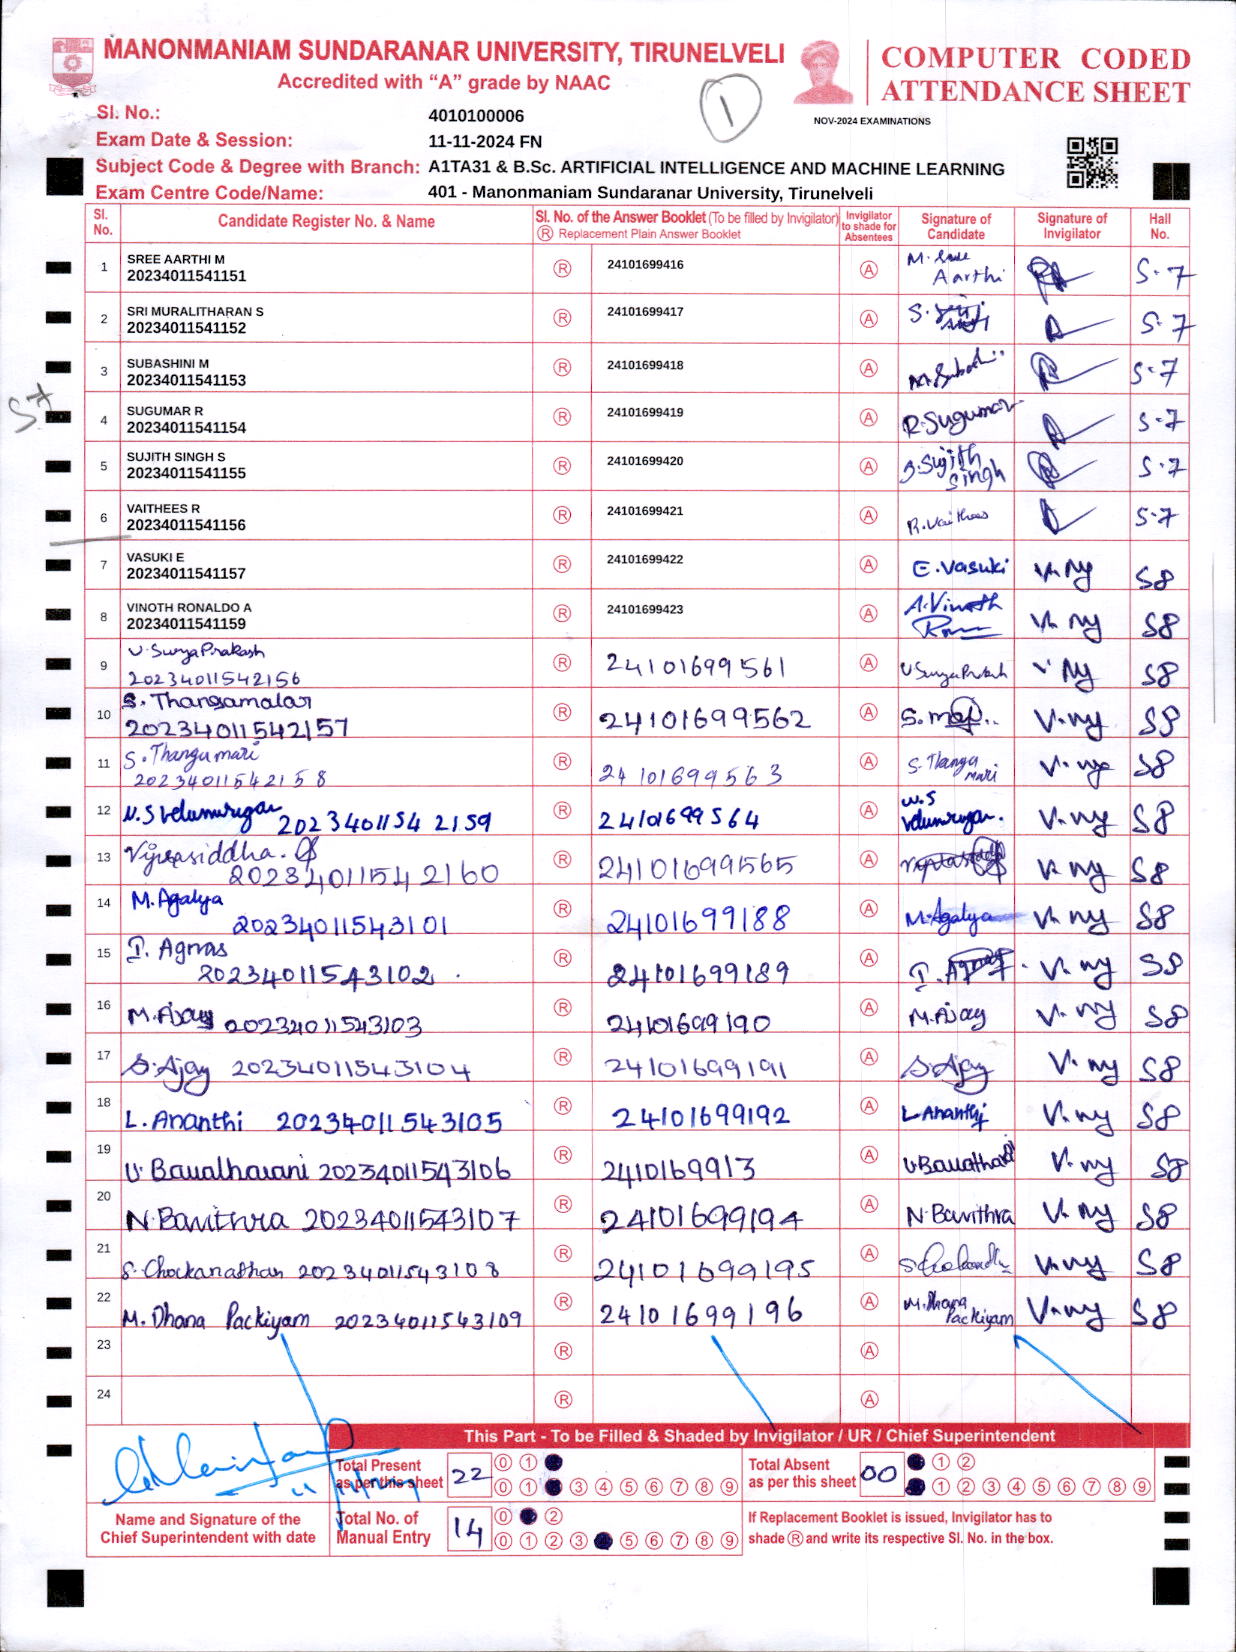 MANONMANIAM SUNDARANAR UNIVERSITY, TIRUNELVELI
Accredited with “A” grade by NAAC
COMPUTER CODED
ATTENDANCE SHEET
1
NOV-2024 EXAMINATIONS
Sl. No.: 4010100006
Exam Date & Session: 11-11-2024 FN
Subject Code & Degree with Branch: A1TA31 & B.Sc. ARTIFICIAL INTELLIGENCE AND MACHINE LEARNING
Exam Centre Code/Name: 401 - Manonmaniam Sundaranar University, Tirunelveli
Sl. No. Candidate Register No. & Name Sl. No. of the Answer Booklet (To be filled by Invigilator) Ⓡ Replacement Plain Answer Booklet Invigilator to shade for Absentees Signature of Candidate Signature of Invigilator Hall No.
1 SREE AARTHI M 20234011541151 Ⓡ 24101699416 Ⓐ M. Sree Aarthi S-7
2 SRI MURALITHARAN S 20234011541152 Ⓡ 24101699417 Ⓐ S-7
3 SUBASHINI M 20234011541153 Ⓡ 24101699418 Ⓐ S-7
S7
4 SUGUMAR R 20234011541154 Ⓡ 24101699419 Ⓐ R.Sugumar S-7
5 SUJITH SINGH S 20234011541155 Ⓡ 24101699420 Ⓐ S.Sujith Singh S-7
6 VAITHEES R 20234011541156 Ⓡ 24101699421 Ⓐ R.Vaithees S-7
7 VASUKI E 20234011541157 Ⓡ 24101699422 Ⓐ E.Vasuki S8
8 VINOTH RONALDO A 20234011541159 Ⓡ 24101699423 Ⓐ A.Vinoth S8
9 U.SuryaPrakash 20234011542156 Ⓡ 24101699561 Ⓐ U SuryaPrakash S8
10 S. Thangamalar 20234011542157 Ⓡ 24101699562 Ⓐ S8
11 S. Thangamari 20234011542158 Ⓡ 24101699563 Ⓐ S. Thanga mari S8
12 W.S Velumurugan 20234011542159 Ⓡ 24101699564 Ⓐ W.S Velumurugan. S8
13 20234011542160 Ⓡ 24101699565 Ⓐ S8
14 M.Agalya 20234011543101 Ⓡ 24101699188 Ⓐ M.Agalya S8
15 I. Agnas 20234011543102 Ⓡ 24101699189 Ⓐ S8
16 M.Ajay 20234011543103 Ⓡ 24101699190 Ⓐ M.Ajay S8
17 S.Ajay 20234011543104 Ⓡ 24101699191 Ⓐ S.Ajay S8
18 L.Ananthi 20234011543105 Ⓡ 24101699192 Ⓐ L.Ananthi S8
19 20234011543106 Ⓡ 2410169913 Ⓐ S8
20 N.Bavithra 20234011543107 Ⓡ 24101699194 Ⓐ N.Bavithra S8
21 S.Chockanathan 20234011543108 Ⓡ 24101699195 Ⓐ S8
22 M.Dhana Packiyam 20234011543109 Ⓡ 24101699196 Ⓐ M.Dhana Packiyam S8
23 Ⓡ Ⓐ
24 Ⓡ Ⓐ
This Part - To be Filled & Shaded by Invigilator / UR / Chief Superintendent
Total Present as per this sheet 22 ⓪ ① ⓪ ① ③ ④ ⑤ ⑥ ⑦ ⑧ ⑨
Total Absent as per this sheet 00 ① ② ① ② ③ ④ ⑤ ⑥ ⑦ ⑧ ⑨
Name and Signature of the Chief Superintendent with date
Total No. of Manual Entry 14 ⓪ ② ⓪ ① ② ③ ⑤ ⑥ ⑦ ⑧ ⑨
If Replacement Booklet is issued, Invigilator has to
shade Ⓡ and write its respective Sl. No. in the box.